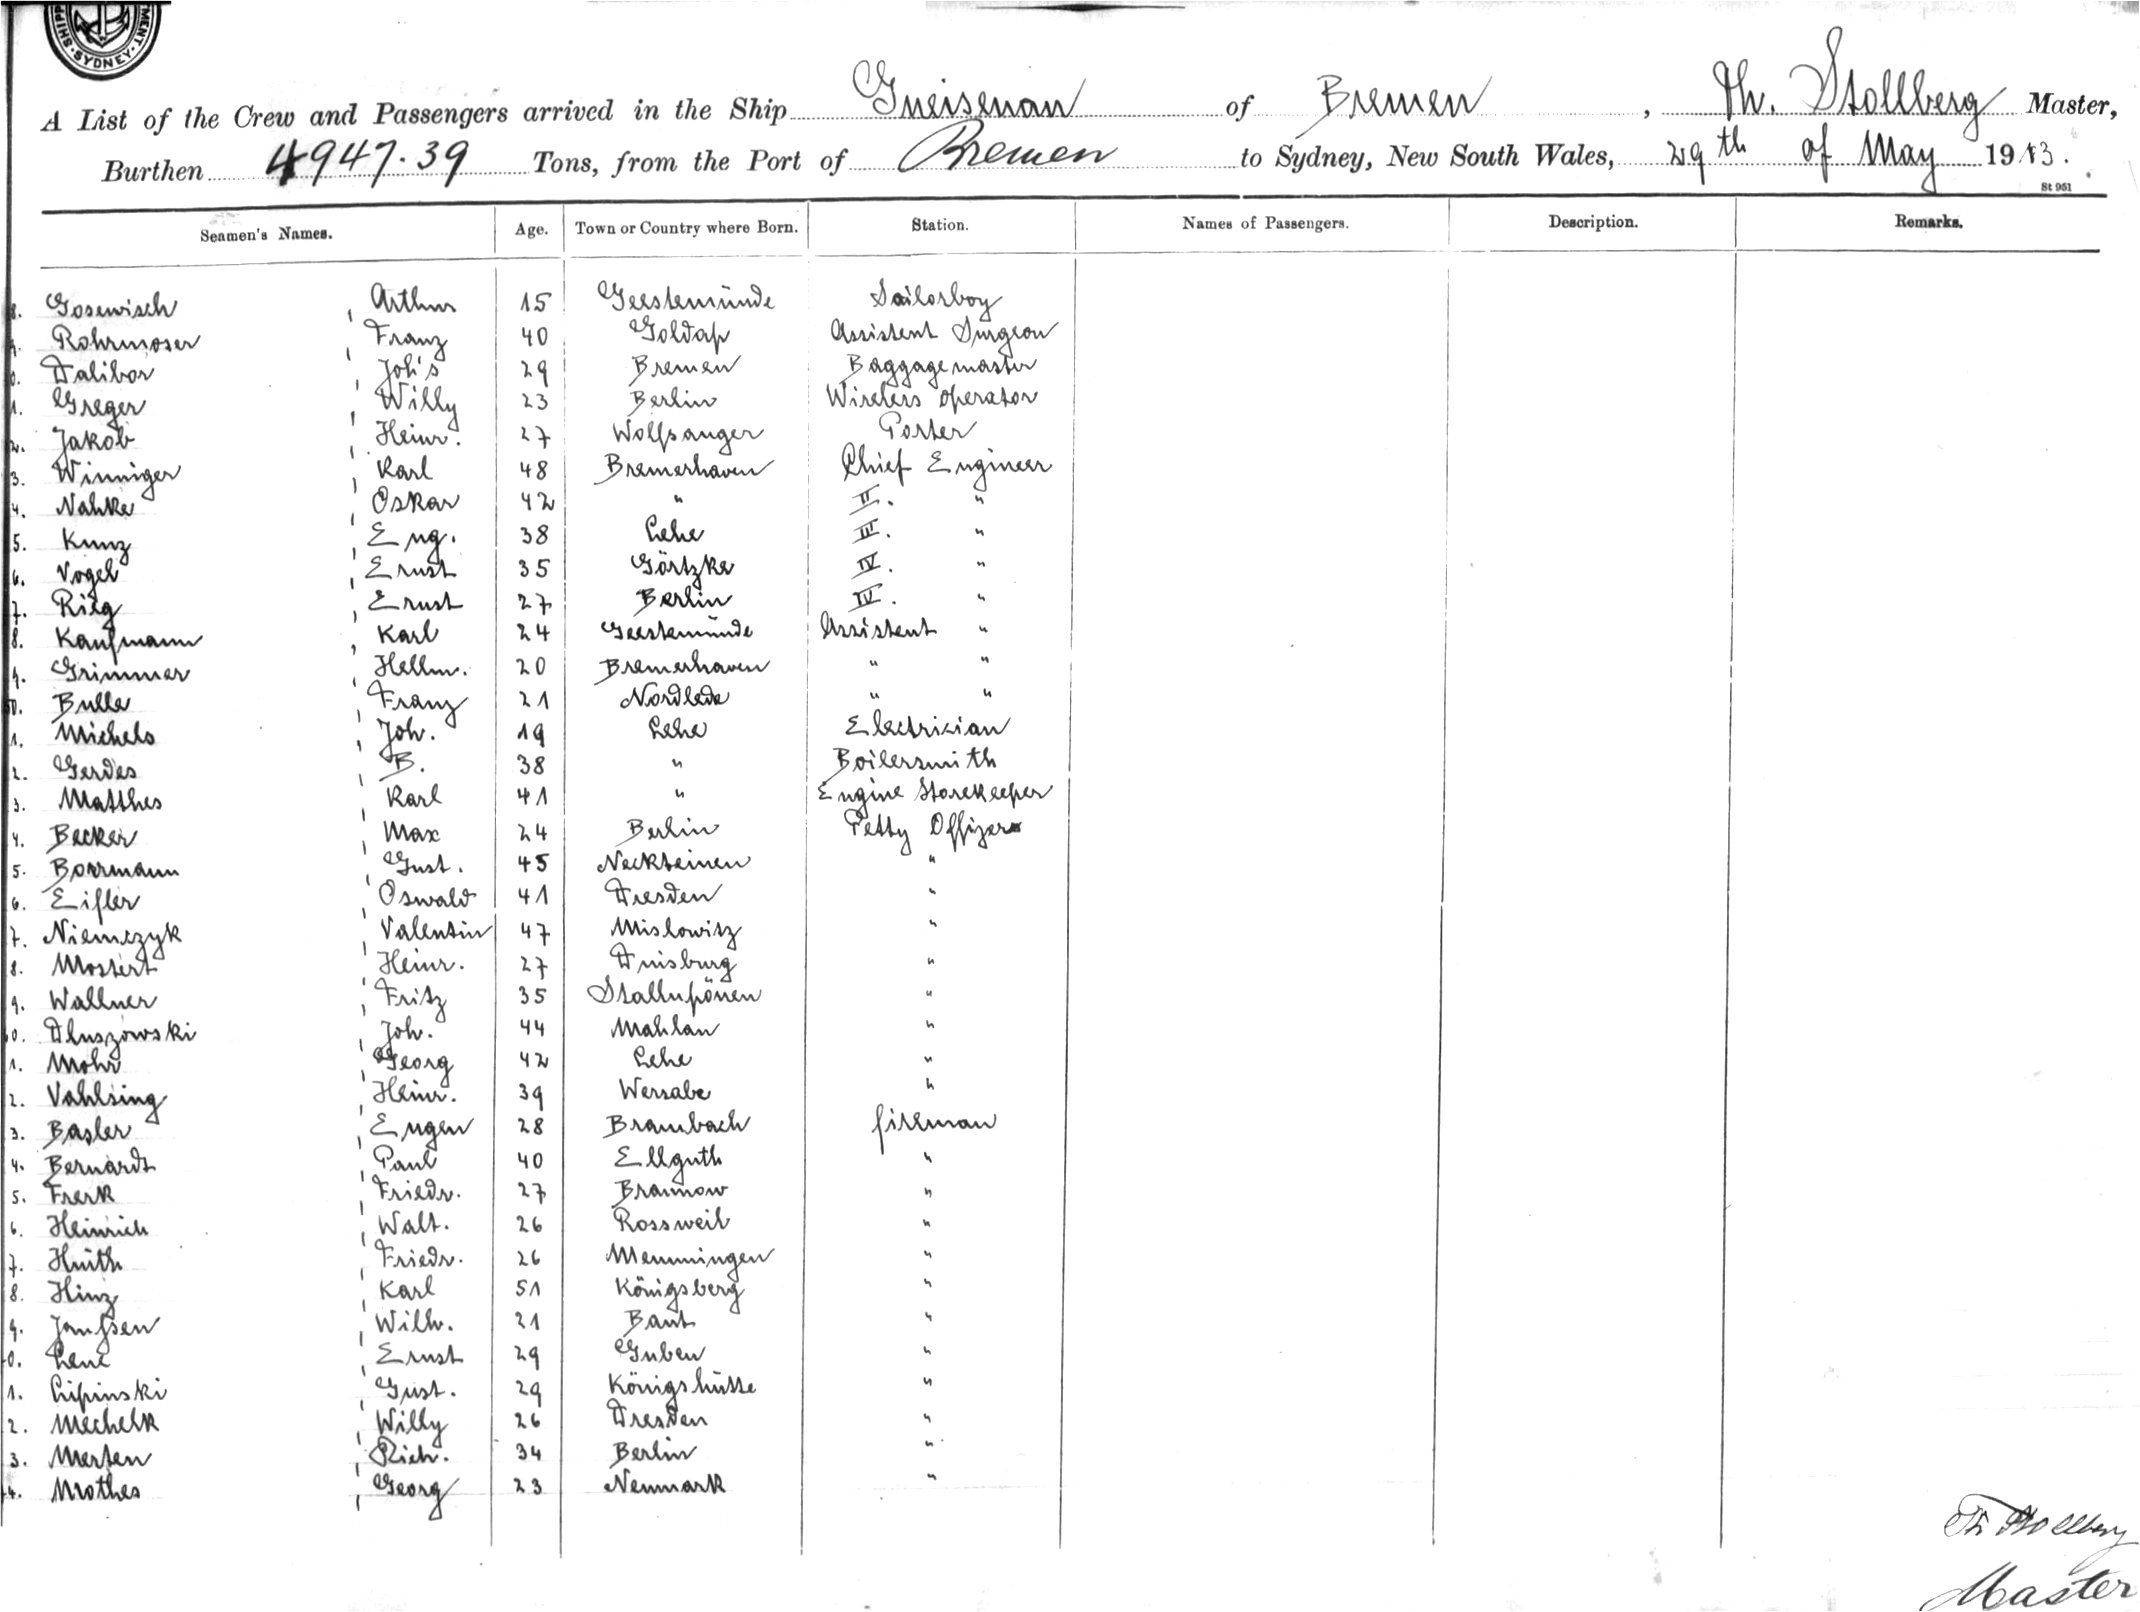 SHIPP MENT · SYDNEY ·
A List of the Crew and Passengers arrived in the Ship Gneisenau of Bremen, Th. Stollberg Master,
Burthen 4947.39 Tons, from the Port of Bremen to Sydney, New South Wales, 29th of May 1913.
St 951
Seamen's Names. Age. Town or Country where Born. Station. Names of Passengers. Description. Remarks.
8. Gosewisch, Arthur 15 Geestemünde Sailorboy
9. Rohrmoser, Franz 40 Goldap Assistent Surgeon
0. Dalibor, Joh's 29 Bremen Baggagemaster
1. Greger, Willy 23 Berlin Wireless operator
2. Jakob, Heinr. 27 Wolfsanger Porter
3. Winniger, Karl 48 Bremerhaven Chief Engineer
4. Nahke, Oskar 42 " II. "
5. Kunz, Eug. 38 Lehe III. "
6. Vogel, Ernst 35 Görtzke IV. "
7. Rieg, Ernst 27 Berlin IV. "
8. Kaufmann, Karl 24 Geestemünde Assistent "
9. Grimmer, Hellm. 20 Bremerhaven " "
50. Bulle, Franz 21 Nordleda " "
1. Michels, Joh. 19 Lehe Electrizian
2. Gerdes, B. 38 " Boilersmith
3. Matthes, Karl 41 " Engine Storekeeper
4. Becker, Max 24 Berlin Petty Offizer
5. Borrmann, Gust. 45 Neckteinen "
6. Eifler, Oswald 41 Dresden "
7. Niemczyk, Valentin 47 Mislowitz "
8. Mostert, Heinr. 27 Duisburg "
9. Wallner, Fritz 35 Stallupönen "
60. Dluszowski, Joh. 44 Mahlau "
1. Mohr, Georg 42 Lehe "
2. Vahlsing, Heinr. 39 Wersabe "
3. Basler, Eugen 28 Brambach fireman
4. Bernardt, Paul 40 Ellguth "
5. Frerk, Friedr. 27 Braunow "
6. Heinrich, Walt. 26 Rossweil "
7. Huith, Friedr. 26 Memmingen "
8. Hinz, Karl 51 Königsberg "
9. Janssen, Wilh. 21 Bant "
0. Leue, Ernst 29 Guben "
1. Lipinski, Gust. 29 Königshütte "
2. Mechelk, Willy 26 Dresden "
3. Merten, Rich. 34 Berlin "
4. Mothes, Georg 23 Neumark "
Th Stollberg
Master